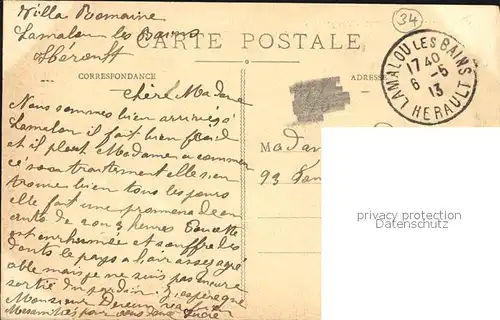 Villa Romaine
Lamalou les Bains
Hérault
CARTE POSTALE
34
CORRESPONDANCE
ADRESSE
LAMALOU LES BAINS
17 40
6 - 5
13
HERAULT
Chère Madame
Nous sommes bien arrivés à
Lamalou il fait bien froid
et il pleut Madame a commen
cé son traitement elle s'en
trouve bien tous les jours
elle fait une promenade en
auto de 2 ou 3 heures
est enrhumée et souffre des
dents le pays a l'air assez agré
able mais je ne suis pas encore
sortie du jardin j'espère que
Monsieur
Mes amitiés pour vous deux
Madame
93
privacy protection
Datenschutz